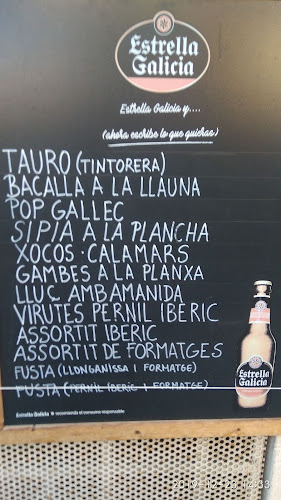 Estrella
Galicia
Estrella Galicia y....
(ahora escribe lo que quieras)
TAURO (TINTORERA)
BACALLA A LA LLAUNA
POP GALLEC
SIPIA A LA PLANCHA
XOCOS · CALAMARS
GAMBES A LA PLANXA
LLUÇ AMB AMANIDA
VIRUTES PERNIL IBERIC
ASSORTIT IBERIC
ASSORTIT DE FORMATGES
FUSTA (LLONGANISSA I FORMATGE)
FUSTA (PERNIL IBERIC I FORMATGE)
Estrella
Galicia
Estrella Galicia recomienda el consumo responsable